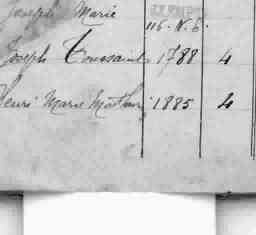 Joseph Marie 116. N. 6.
Joseph Toussaint 1788 4
Henri Marie 1885 4